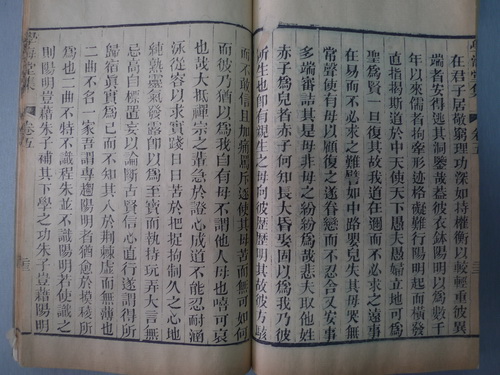 在君子居敬窮理功深如持權衡以較輕重彼異
端者安得逃其洞鑒哉蓋彼衣鉢陽明以爲數千
年以來儒者拘牽形迹格礙難行陽明起而橫發
直指揭斯道於中天使天下愚夫愚婦立地可爲
聖爲賢一旦復其故我當在週而不必求之遠事
在易而不必求之難譬如中路嬰兒失其母哭無
常聲使有母以紿之遂眷戀而不忍舍又安事
多端審詰其是母非母之紛紛爲哉悲夫取他姓
赤子爲兒者赤子何知長大昏娶固以爲我乃彼
所生也卽有親生之母向彼歷歷明其故彼方駭
學海堂集
卷五
而不敢信且加痛罵斥逐使其母苦而無可如何
而彼乃猶以爲我自有母不謂他人母也噫可哀
也哉大抵禪宗之輩急於證心成道不能忍耐涵
泳從容以求實踐日日苦於把捉拘制久之心地
純熟靈氣發露卽以爲至寶而執持玩弄大言無
忌高自標置妄以論斷古賢信心直行遂謂得所
歸宿眞實爲己而不知其入於荆棘虛而無薄也
二曲不省一家吾謂專趨陽明者猶愈於摸稜所
爲也二曲不特不識程朱並不識陽明若使識之
則陽明豈藉朱子補其下學之功朱子豈藉陽明